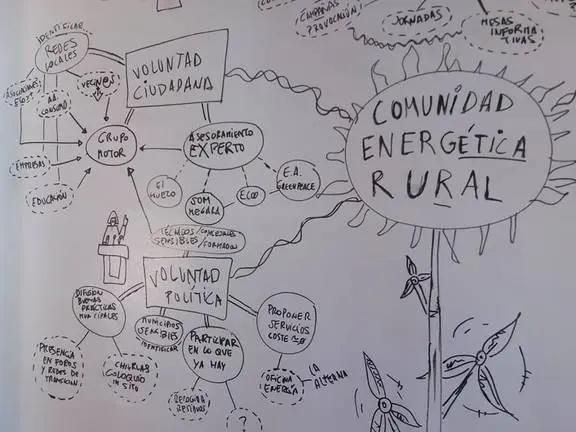 CAMPAÑAS
PROVOCACIÓN
JORNADAS
MESAS
INFORMA
TIVAS
IDENTIFICAR
REDES
LOCALES
VECIN@S
ASOCIACIONES
AA
CONSUMO
EMPRESAS
EDUCACIÓN
GRUPO
MOTOR
VOLUNTAD
CIUDADANA
ASESORAMIENTO
EXPERTO
EL
HUECO
SOM
ECOO
E.A.
GREENPEACE
COMUNIDAD
ENERGÉTICA
RURAL
TÉCNICOS/CONCEJALES
SENSIBLES/
FORMADOS
VOLUNTAD
POLÍTICA
DIFUSIÓN
BUENAS
PRÁCTICAS
MUNICIPALES
PRESENCIA
EN FOROS
Y REDES DE
TRANSICIÓN
CHARLAS
COLOQUIO
IN SITU
MUNICIPIOS
SENSIBLES
IDENTIFICAR
PARTICIPAR
EN LO QUE
YA HAY
RECOGIDA
RESIDUOS
?
PROPONER
SERVICIOS
COSTE
OFICINA
ENERGÍA
LA
ALTERNA